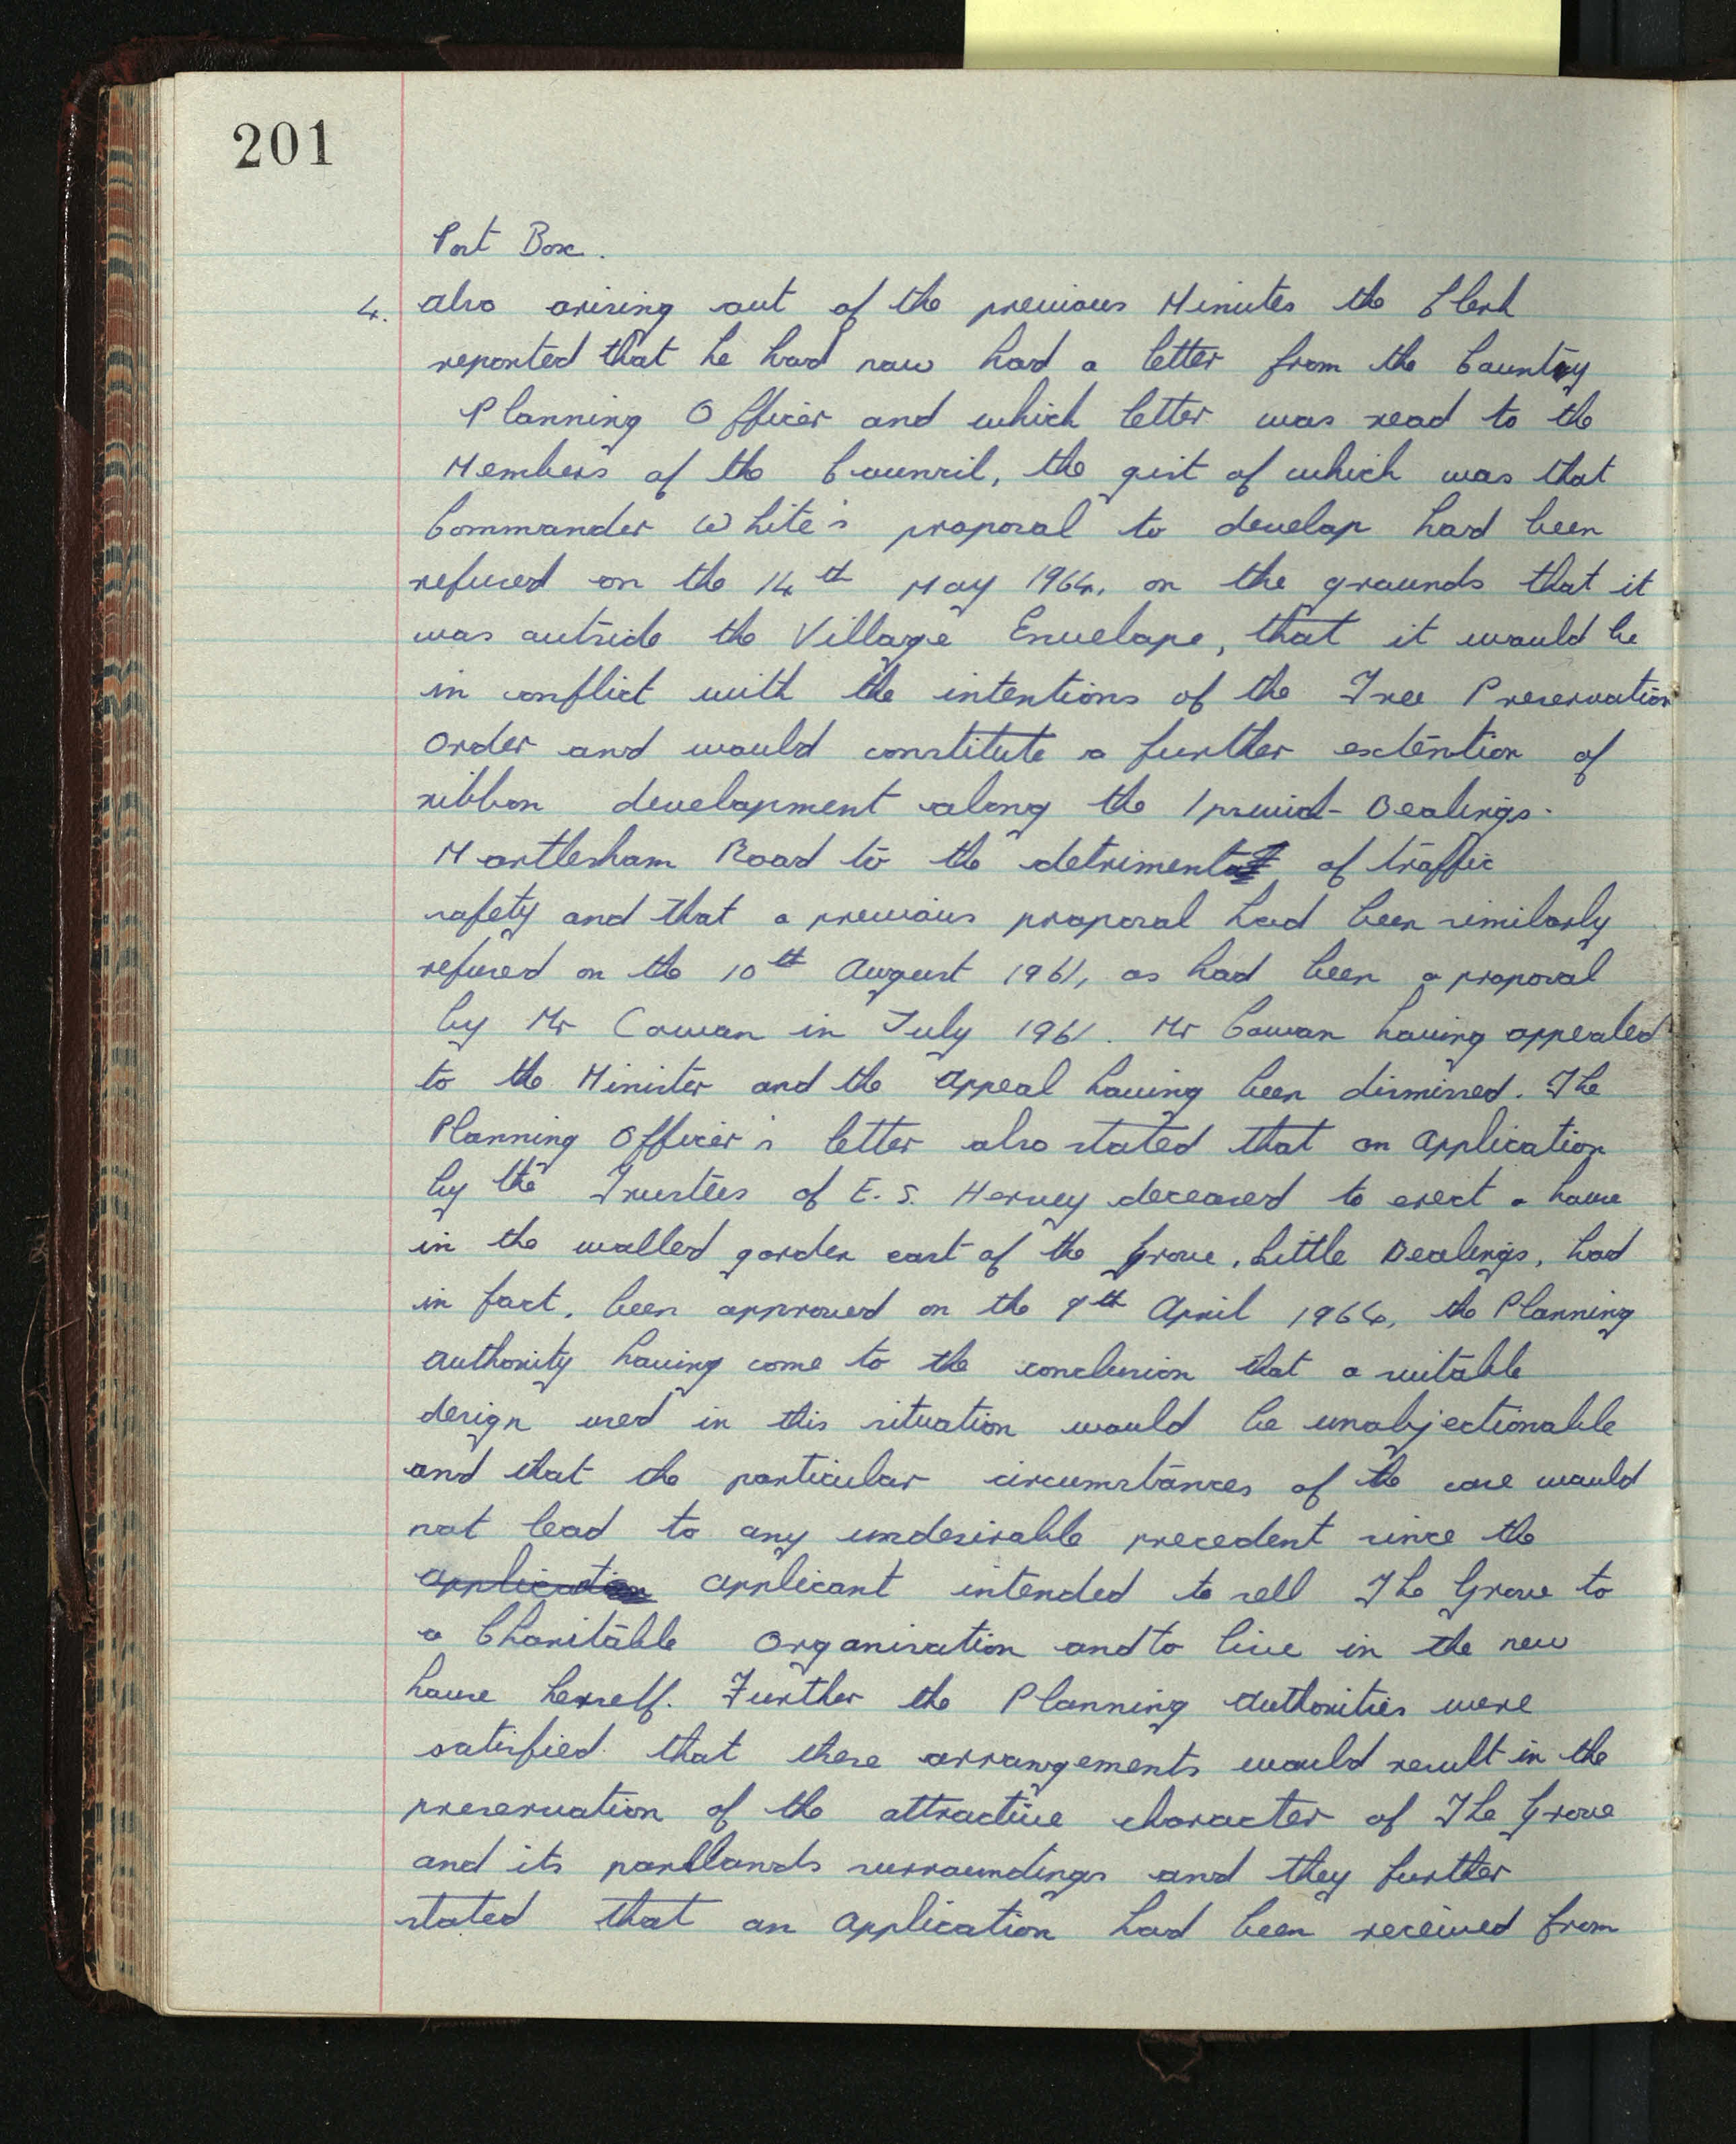 201
Post Box.
4. Also arising out of the previous Minutes the Clerk
reported that he had now had a letter from the County
Planning Officer and which letter was read to the
Members of the Council, the gist of which was that
Commander White's proposal to develop had been
refused on the 14th May 1964, on the grounds that it
was outside the Village Envelope, that it would be
in conflict with the intentions of the Tree Preservation
Order and would constitute a further extention of
ribbon development along the Ipswich-Bealings-
Martlesham Road to the detriment of traffic
safety and that a previous proposal had been similarly
refused on the 10th August 1961, as had been a proposal
by Mr Cowan in July 1961. Mr Cowan having appealed
to the Minister and the Appeal having been dismissed. The
Planning Officer's letter also stated that an Application
by the Trustees of E. S. Hervey deceased to erect a house
in the walled garden east of the Grove, Little Bealings, had
in fact, been approved on the 9th April 1964, the Planning
Authority having come to the conclusion that a suitable
design used in this situation would be unobjectionable
and that the particular circumstances of the case would
not lead to any undesirable precedent since the
application applicant intended to sell The Grove to
a Charitable Organisation and to live in the new
house herself. Further the Planning Authorities were
satisfied that these arrangements would result in the
preservation of the attractive character of The Grove
and its parklands surroundings and they further
stated that an Application had been received from